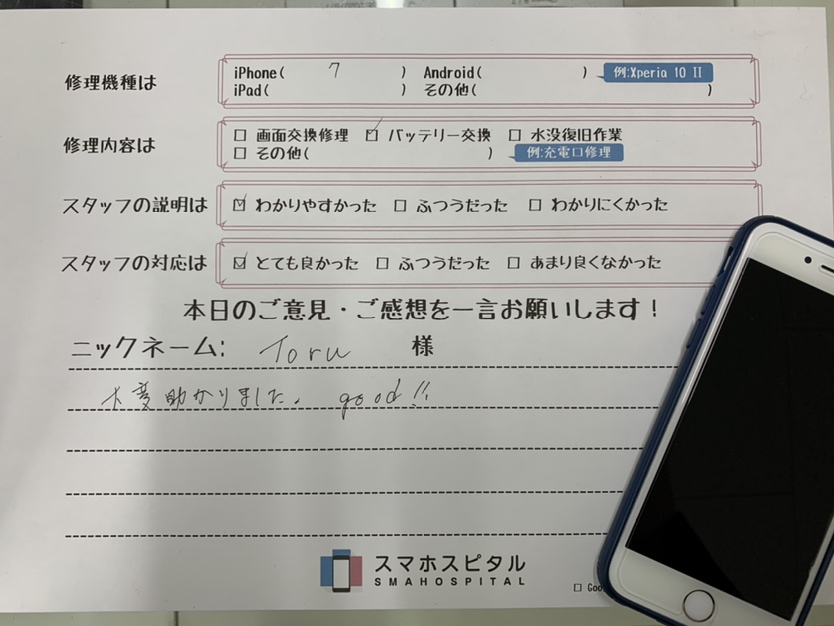 修理機種は iPhone( 7 ) Android( ) 例:Xperia 10 II
iPad( ) その他( )
修理内容は □ 画面交換修理 ☑ バッテリー交換 □ 水没復旧作業
□ その他( ) 例:充電口修理
スタッフの説明は ☑ わかりやすかった □ ふつうだった □ わかりにくかった
スタッフの対応は ☑ とても良かった □ ふつうだった □ あまり良くなかった
本日のご意見・ご感想を一言お願いします!
ニックネーム: Toru 様
大変助かりました。 good!!
スマホスピタル
SMAHOSPITAL